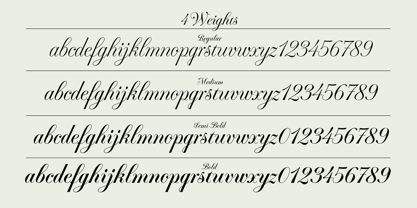 4 Weights
Regular
abcdefghijklmnopqrstuvwxyz123456789
Medium
abcdefghijklmnopqrstuvwxyz123456789
Semi Bold
abcdefghijklmnopqrstuvwxyz0123456789
Bold
abcdefghijklmnopqrstuvwxyz0123456789